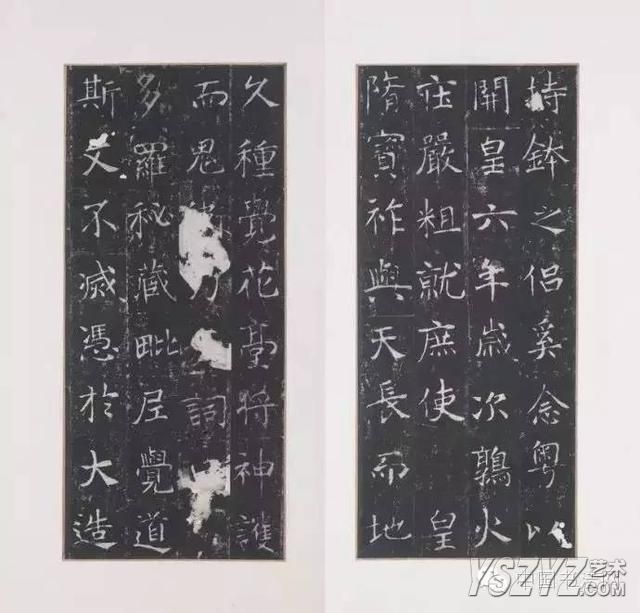 持鉢之侶奚念粵以
開皇六年歲次鶉火
庄嚴粗就庶使 皇
隋寶祚與天長而地
久種覺花臺將神護
而鬼乃詞
多羅秘藏毗尼覺道
斯文不滅憑於大造
YSZYZ艺术
.COM